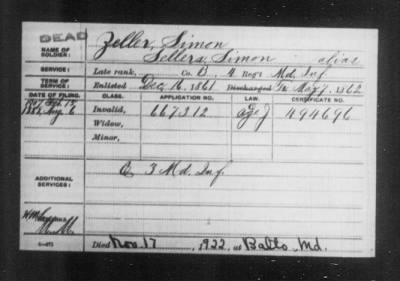 DEAD
NAME OF SOLDIER:
Zeller, Simon
Sellers, Simon alias
SERVICE:
Late rank, Co. B, 4 Reg't Md. Inf
TERM OF SERVICE:
Enlisted Dec. 16, 1861 Discharged May 7, 1862
DATE OF FILING. CLASS. APPLICATION NO. LAW. CERTIFICATE NO.
Aug. 6 Invalid, 667312 494696
Widow,
Minor,
ADDITIONAL SERVICES:
3 Md. Inf
6-471
Died Nov. 17, 1922, at Balto. Md.